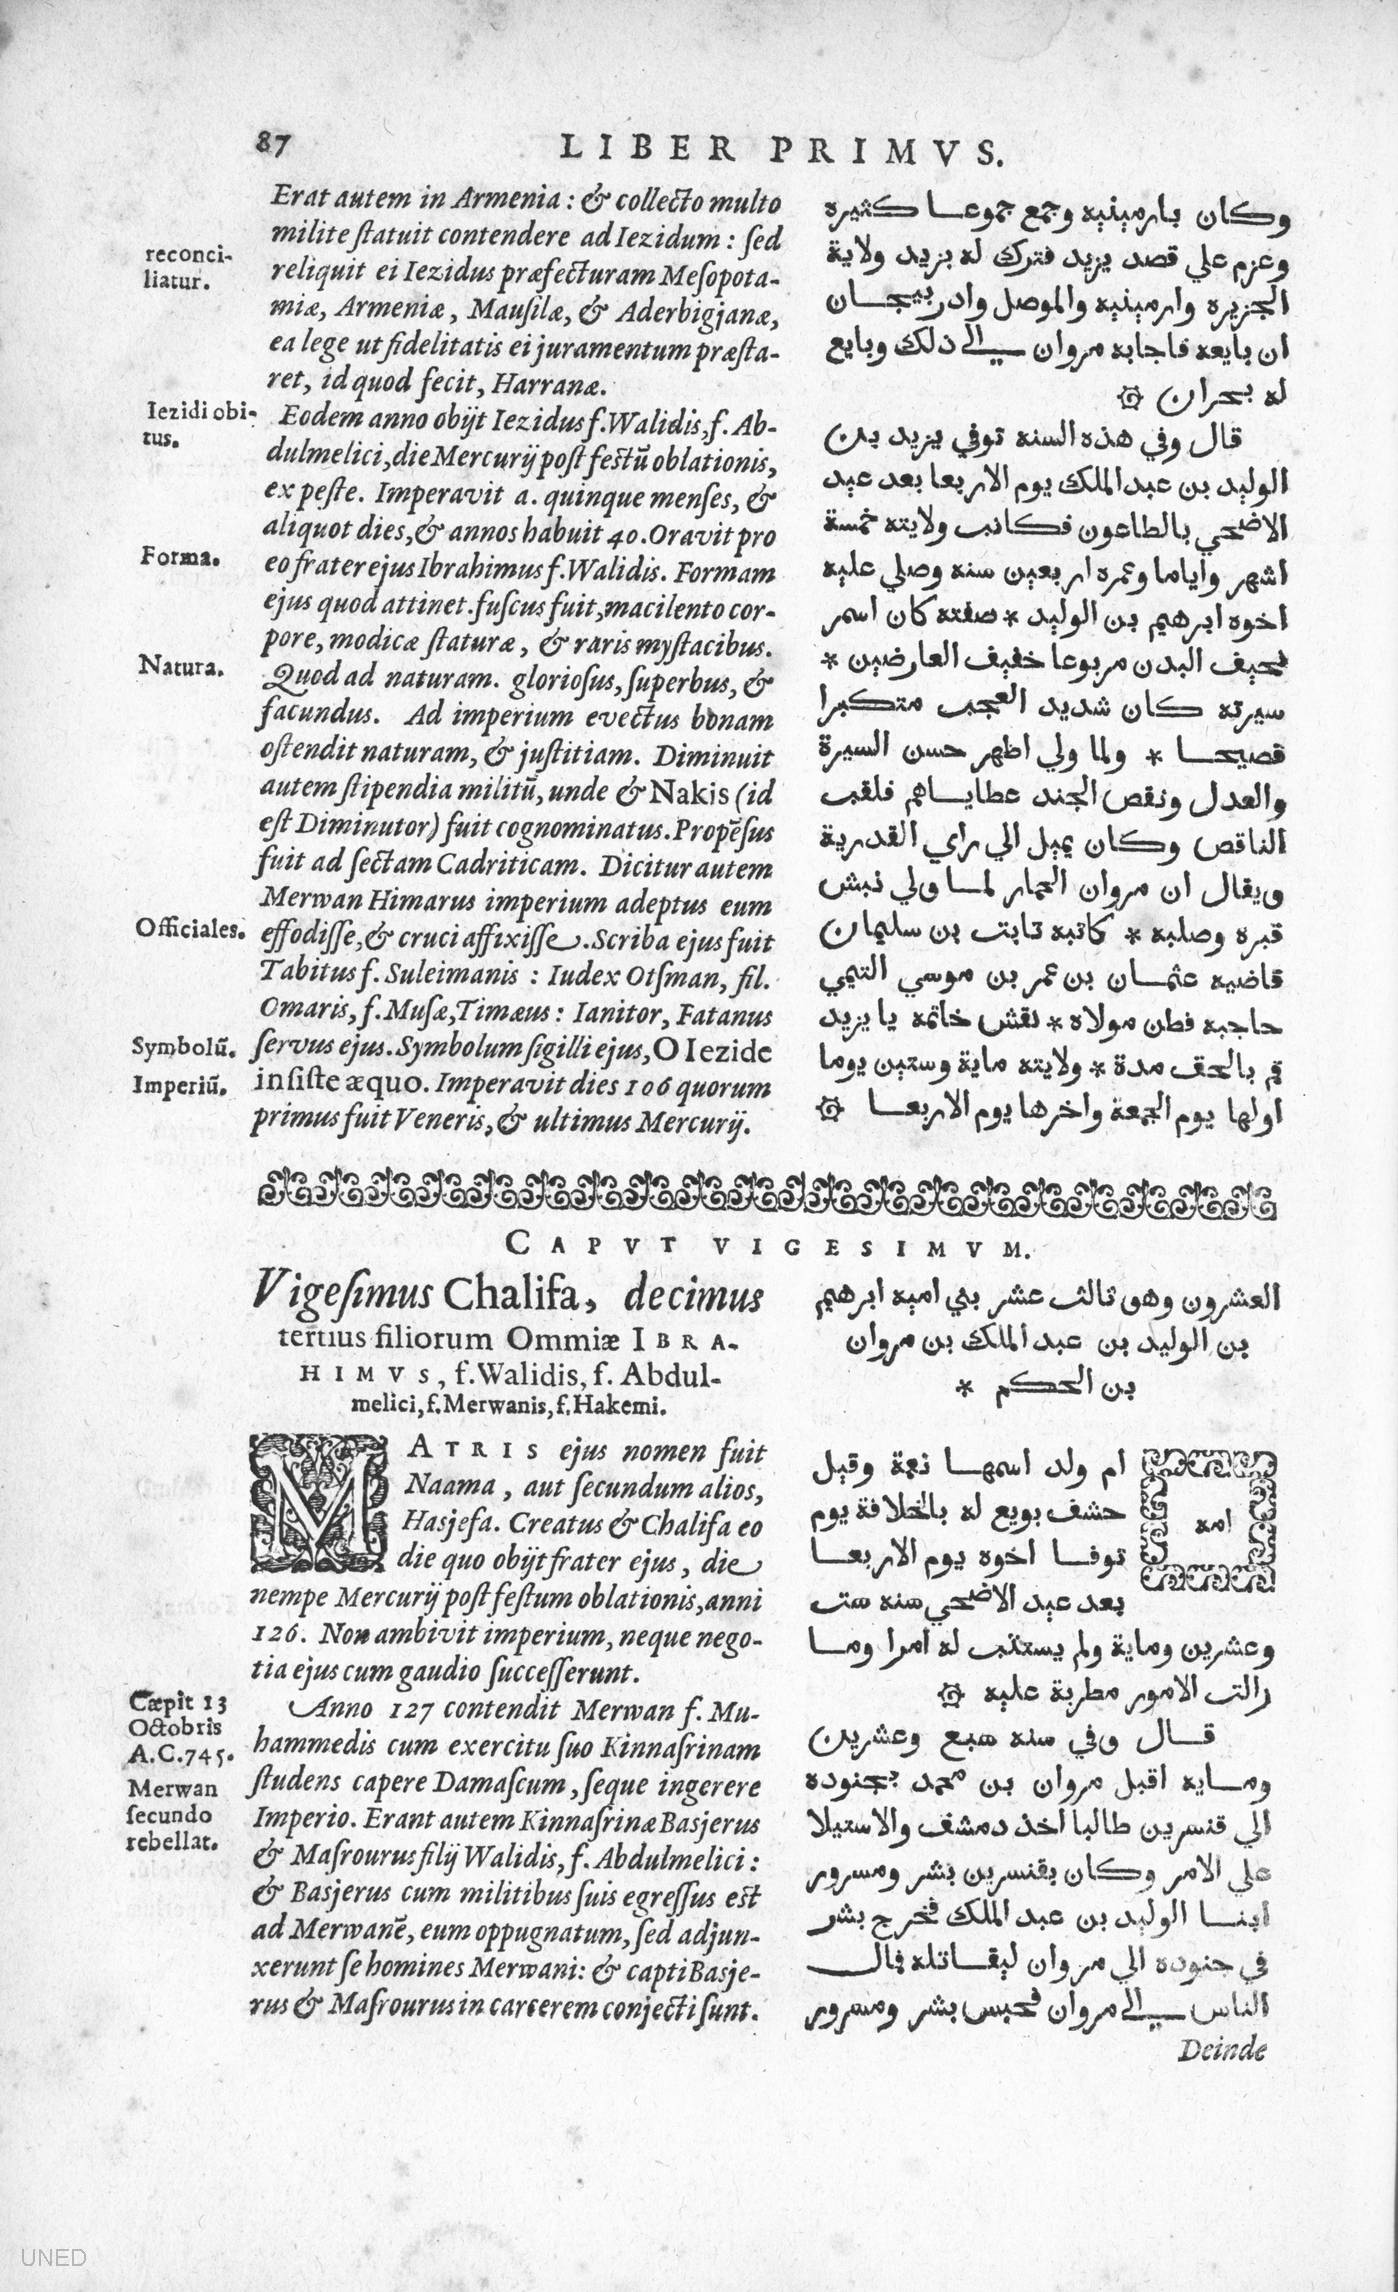 87 LIBER PRIMVS.
Erat autem in Armenia: & collecto multo
milite ſtatuit contendere ad Iezidum: ſed
reliquit ei Iezidus præfecturam Meſopota-
miæ, Armeniæ, Mauſilæ, & Aderbigjanæ,
ea lege ut fidelitatis ei juramentum præſta-
ret, id quod fecit, Harranæ.
Eodem anno obijt Iezidus f. Walidis, f. Ab-
dulmelici, die Mercurij poſt feſtũ oblationis,
ex peſte. Imperavit a. quinque menſes, &
aliquot dies, & annos habuit 40. Oravit pro
eo frater ejus Ibrahimus f. Walidis. Formam
ejus quod attinet. fuſcus fuit, macilento cor-
pore, modicæ ſtaturæ, & raris myſtacibus.
Quod ad naturam. glorioſus, ſuperbus, &
facundus. Ad imperium evectus bonam
oſtendit naturam, & juſtitiam. Diminuit
autem ſtipendia militũ, unde & Nakis (id
eſt Diminutor) fuit cognominatus. Propẽſus
fuit ad ſectam Cadriticam. Dicitur autem
Merwan Himarus imperium adeptus eum
effodiſſe, & cruci affixiſſe. Scriba ejus fuit
Tabitus f. Suleimanis: Iudex Otſman, fil.
Omaris, f. Muſæ, Timæus: Ianitor, Fatanus
ſervus ejus. Symbolum ſigilli ejus, O Iezide
inſiſte æquo. Imperavit dies 106 quorum
primus fuit Veneris, & ultimus Mercurij.
reconci-
liatur.
Iezidi obi-
tus.
Forma.
Natura.
Officiales.
Symbolũ.
Imperiũ.
وكان بارمينيه وجمع جموعا كثيره
وعزم علي قصد يزيد فترك له يزيد ولاية
الجزيره وارمينيه والموصل وادربيجان
ان بايعه فاجابه مروان الي ذلك وبايع
له بحران
قال وفي هذه السنه توفي يزيد بن
الوليد بن عبد الملك يوم الاربعا بعد عيد
الاضحي بالطاعون فكانب ولايته خمسة
اشهر واياما وعمره اربعين سنه وصلي عليه
اخوه ابرهيم بن الوليد * صفته كان اسمر
نحيف البدن مربوعا خفيف العارضين *
سيرته كان شديد العجب متكبرا
فصيحا * ولما ولي اظهر حسن السيرة
والعدل ونقص الجند عطاياهم فلقب
الناقص وكان يميل الي راي القدرية
ويقال ان مروان الحمار لما ولي نبش
قبره وصلبه * كاتبه تابت بن سليمان
قاضيه عثمان بن عمر بن موسي التيمي
حاجبه فطن مولاه * نقش خاتمه يا يزيد
قم بالحق مدة * ولايته ماية وستين يوما
اولها يوم الجمعة واخرها يوم الاربعا
CAPVT VIGESIMVM.
Vigeſimus Chalifa, decimus
tertius filiorum Ommiæ IBRA-
HIMVS, f. Walidis, f. Abdul-
melici, f. Merwanis, f. Hakemi.
العشرون وهو تالث عشر بني اميه ابرهيم
بن الوليد بن عبد الملك بن مروان
بن الحكم *
MATRIS ejus nomen fuit
Naama, aut ſecundum alios,
Hasjefa. Creatus & Chalifa eo
die quo obijt frater ejus, die
nempe Mercurij poſt feſtum oblationis, anni
126. Non ambivit imperium, neque nego-
tia ejus cum gaudio ſucceſſerunt.
Anno 127 contendit Merwan f. Mu-
hammedis cum exercitu ſuo Kinnaſrinam
ſtudens capere Damaſcum, ſeque ingerere
Imperio. Erant autem Kinnaſrinæ Basjerus
& Maſrourus filij Walidis, f. Abdulmelici:
& Basjerus cum militibus ſuis egreſſus eſt
ad Merwanẽ, eum oppugnatum, ſed adjun-
xerunt ſe homines Merwani: & capti Basje-
rus & Maſrourus in carcerem conjecti ſunt.
Cæpit 13
Octobris
A.C.745.
Merwan
ſecundo
rebellat.
امه ام ولد اسمها نعمة وقيل
حشف بويع له بالخلافة يوم
توفا اخوه يوم الاربعا
بعد عيد الاضحي سنه ست
وعشرين وماية ولم يستتب له امرا وما
زالت الامور مطربة عليه
قال وفي سنه سبع وعشرين
ومايه اقبل مروان بن محمد بجنوده
الي قنسرين طالبا اخذ دمشق والاستيلا
علي الامر وكان بقنسرين بشر ومسرور
ابنا الوليد بن عبد الملك فخرج بشر
في جنوده الي مروان ليقاتله فمال
الناس الي مروان فحبس بشر ومسرور
Deinde
UNED